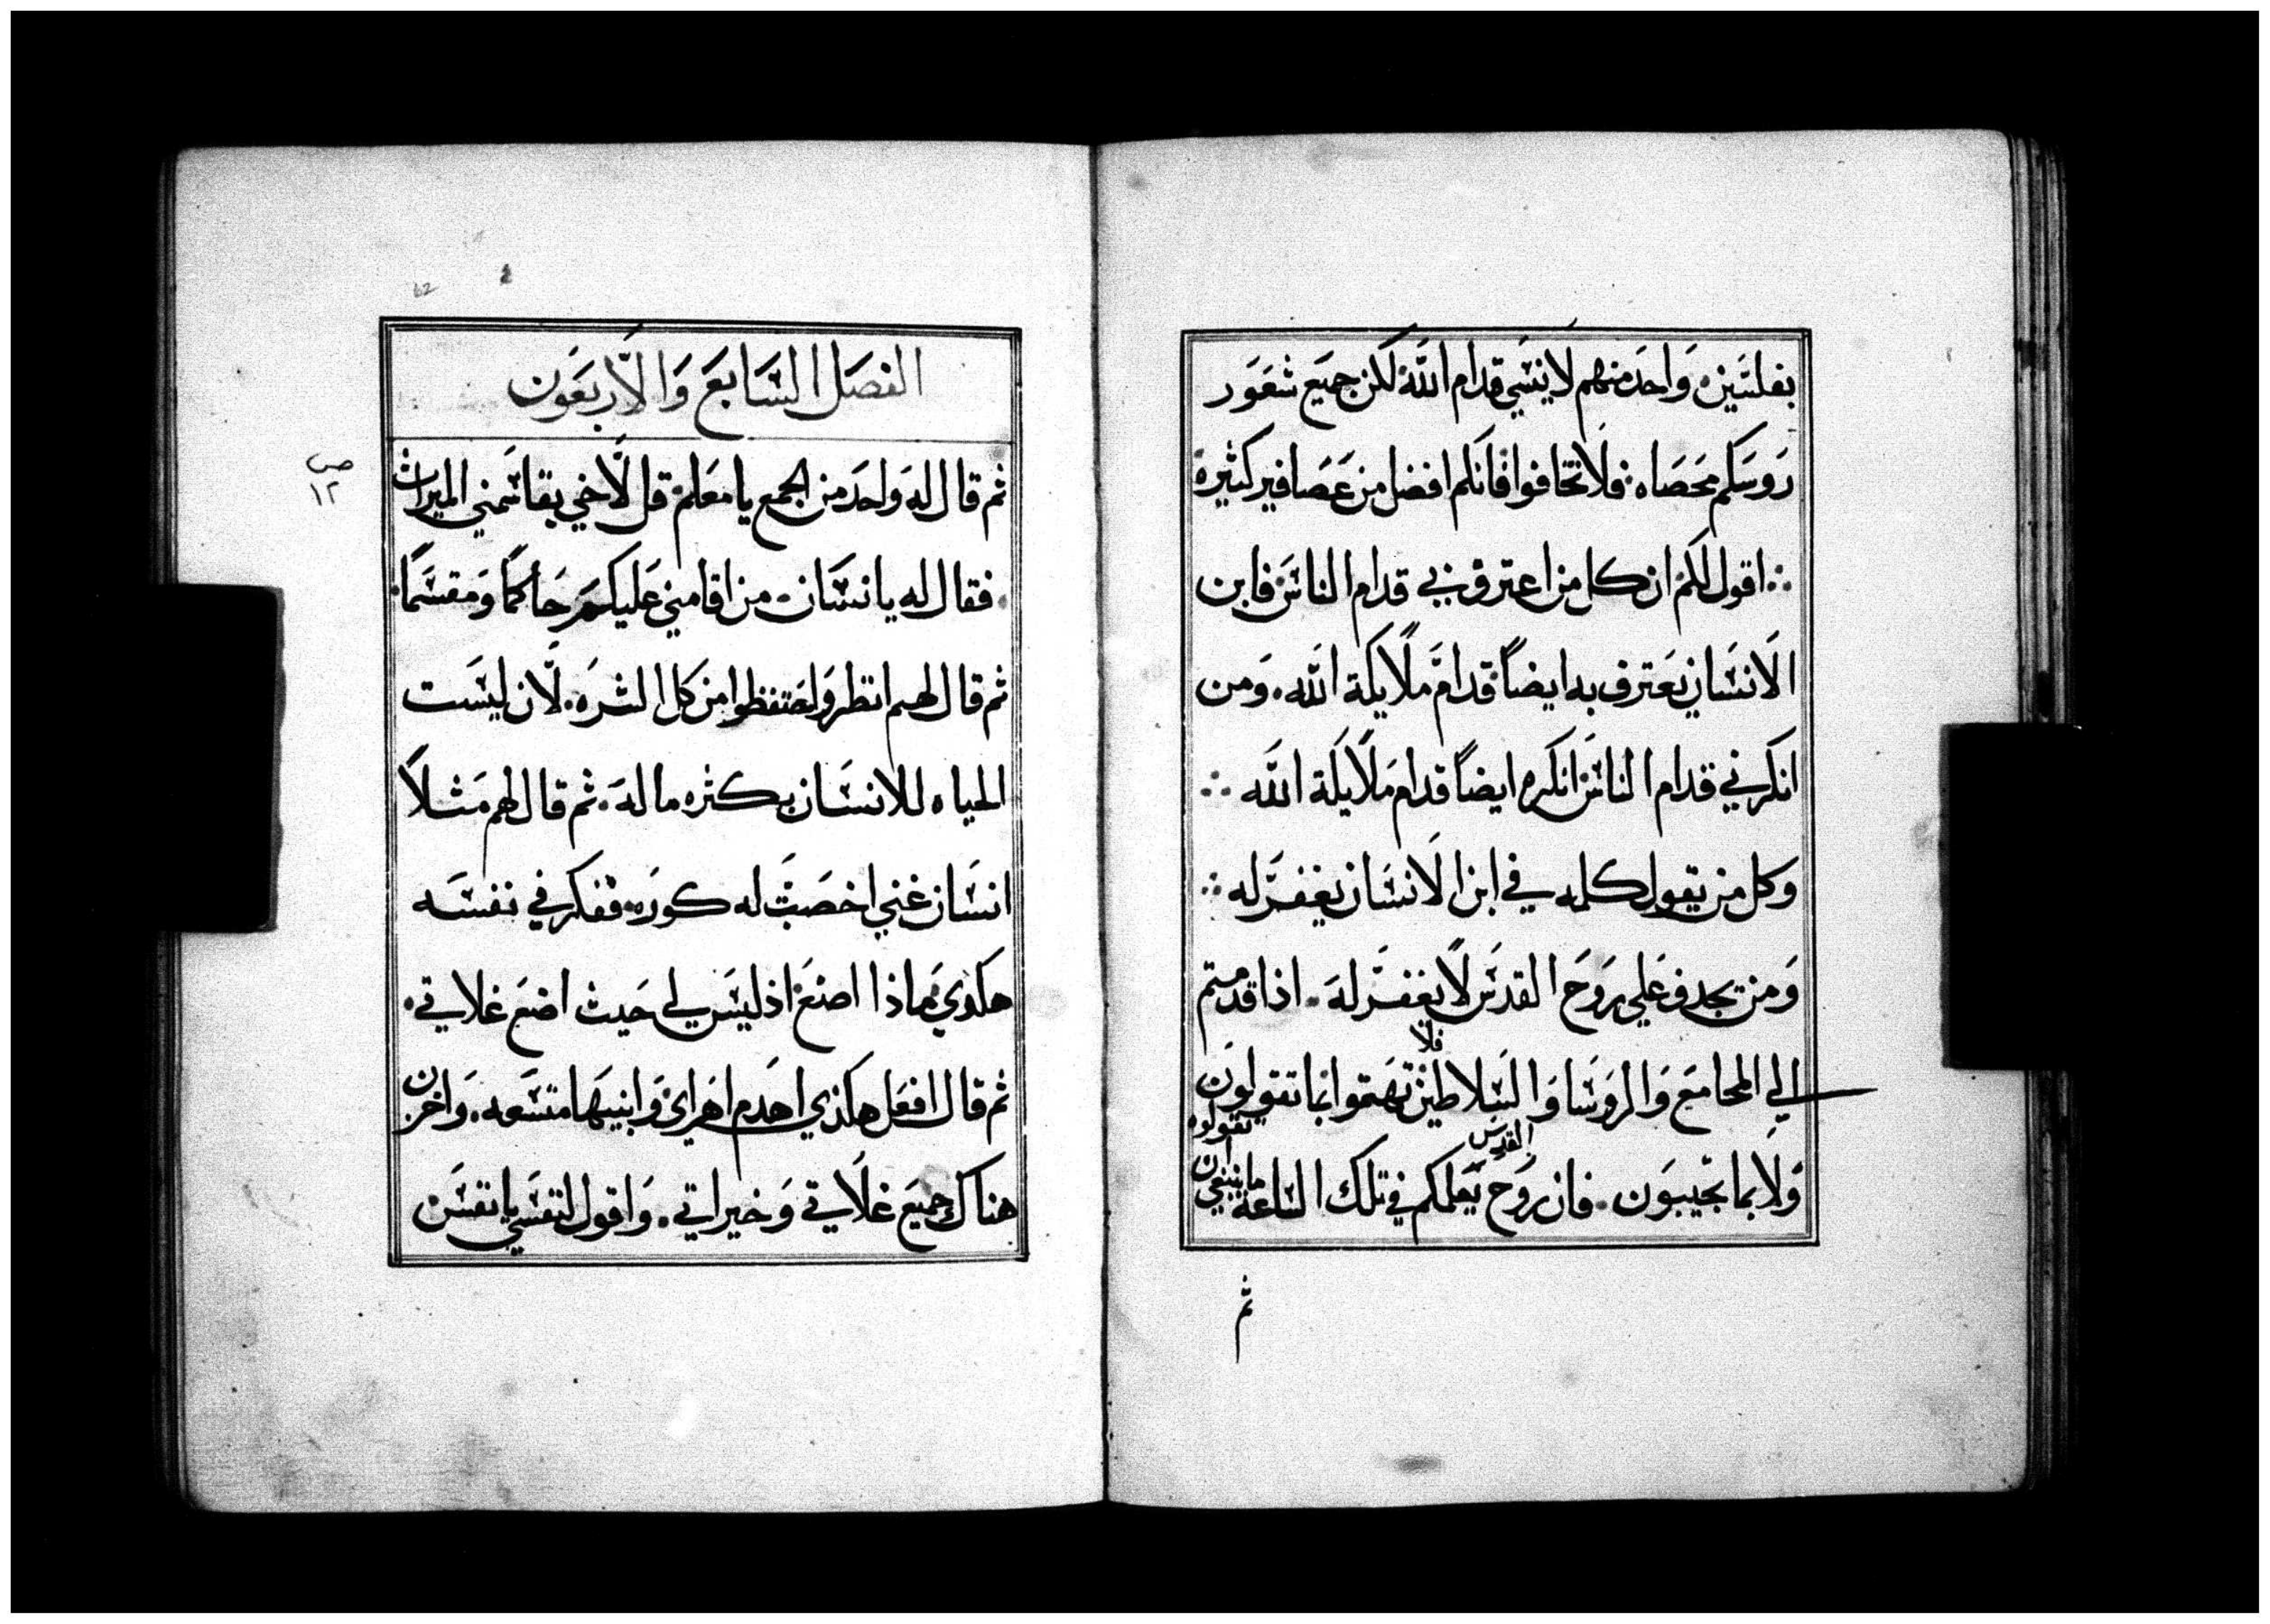 بفلسين. وَاحد منهم لا ينسي قدام الله لكن جميع شعَور
رَوسَكم محَصَاه. فلا تخافوا فانكم افضل من عَصَافير كثيرة
اقول لكم ان كل من اعترف بي قدام الناس فابن
الانسَان يَعترف به ايضاً قدام مَلايكة الله. وَمن
انكرني قدام الناس انكره ايضاً قدام مَلايكة الله
وكل من يقول كلمه في ابن الانسَان يغفرَ له
وَمن يجدف عَلي روَح القدسَ لا يغفرَ له. اذا قدمتم
الي المجامعَ وَالروَسَا وَالسَلاطين فلا تهتموا بما تقولون
وَلا بما تجيبوَن. فان روَح القدس يَعلمكم في تلك الساعة ما ينبغي ان
تقولوه
ثم
62
الفصَل السَابعَ وَالاربعَون
ص
١٢
ثم قال له وَاحدَ من الجمع يا معَلم قل لاخي يقاسَمني الميراث
فقال له يا انسَان. من اقامني عَليكم حَاكمًا وَمقسَمًا
ثم قال لهم انظروَا وَاحتفظوا من كل الشرَه. لان ليسَت
الحياه للانسَان بكثره ماله. ثم قال لهم مَثلاً
انسَان غني اخصَبت له كورَه. ففكر في نفسَه
هكذي ماذا اصنعَ اذ ليسَ لي حَيث اضعَ غلاتي.
ثم قال افعَل هكذي اهدَم اهرَاي وَابنيهَا متسَعه. وَاخزن
هناك جميعَ غلاتي وَخيراتي. وَاقول لنفسَي يا نفسَ